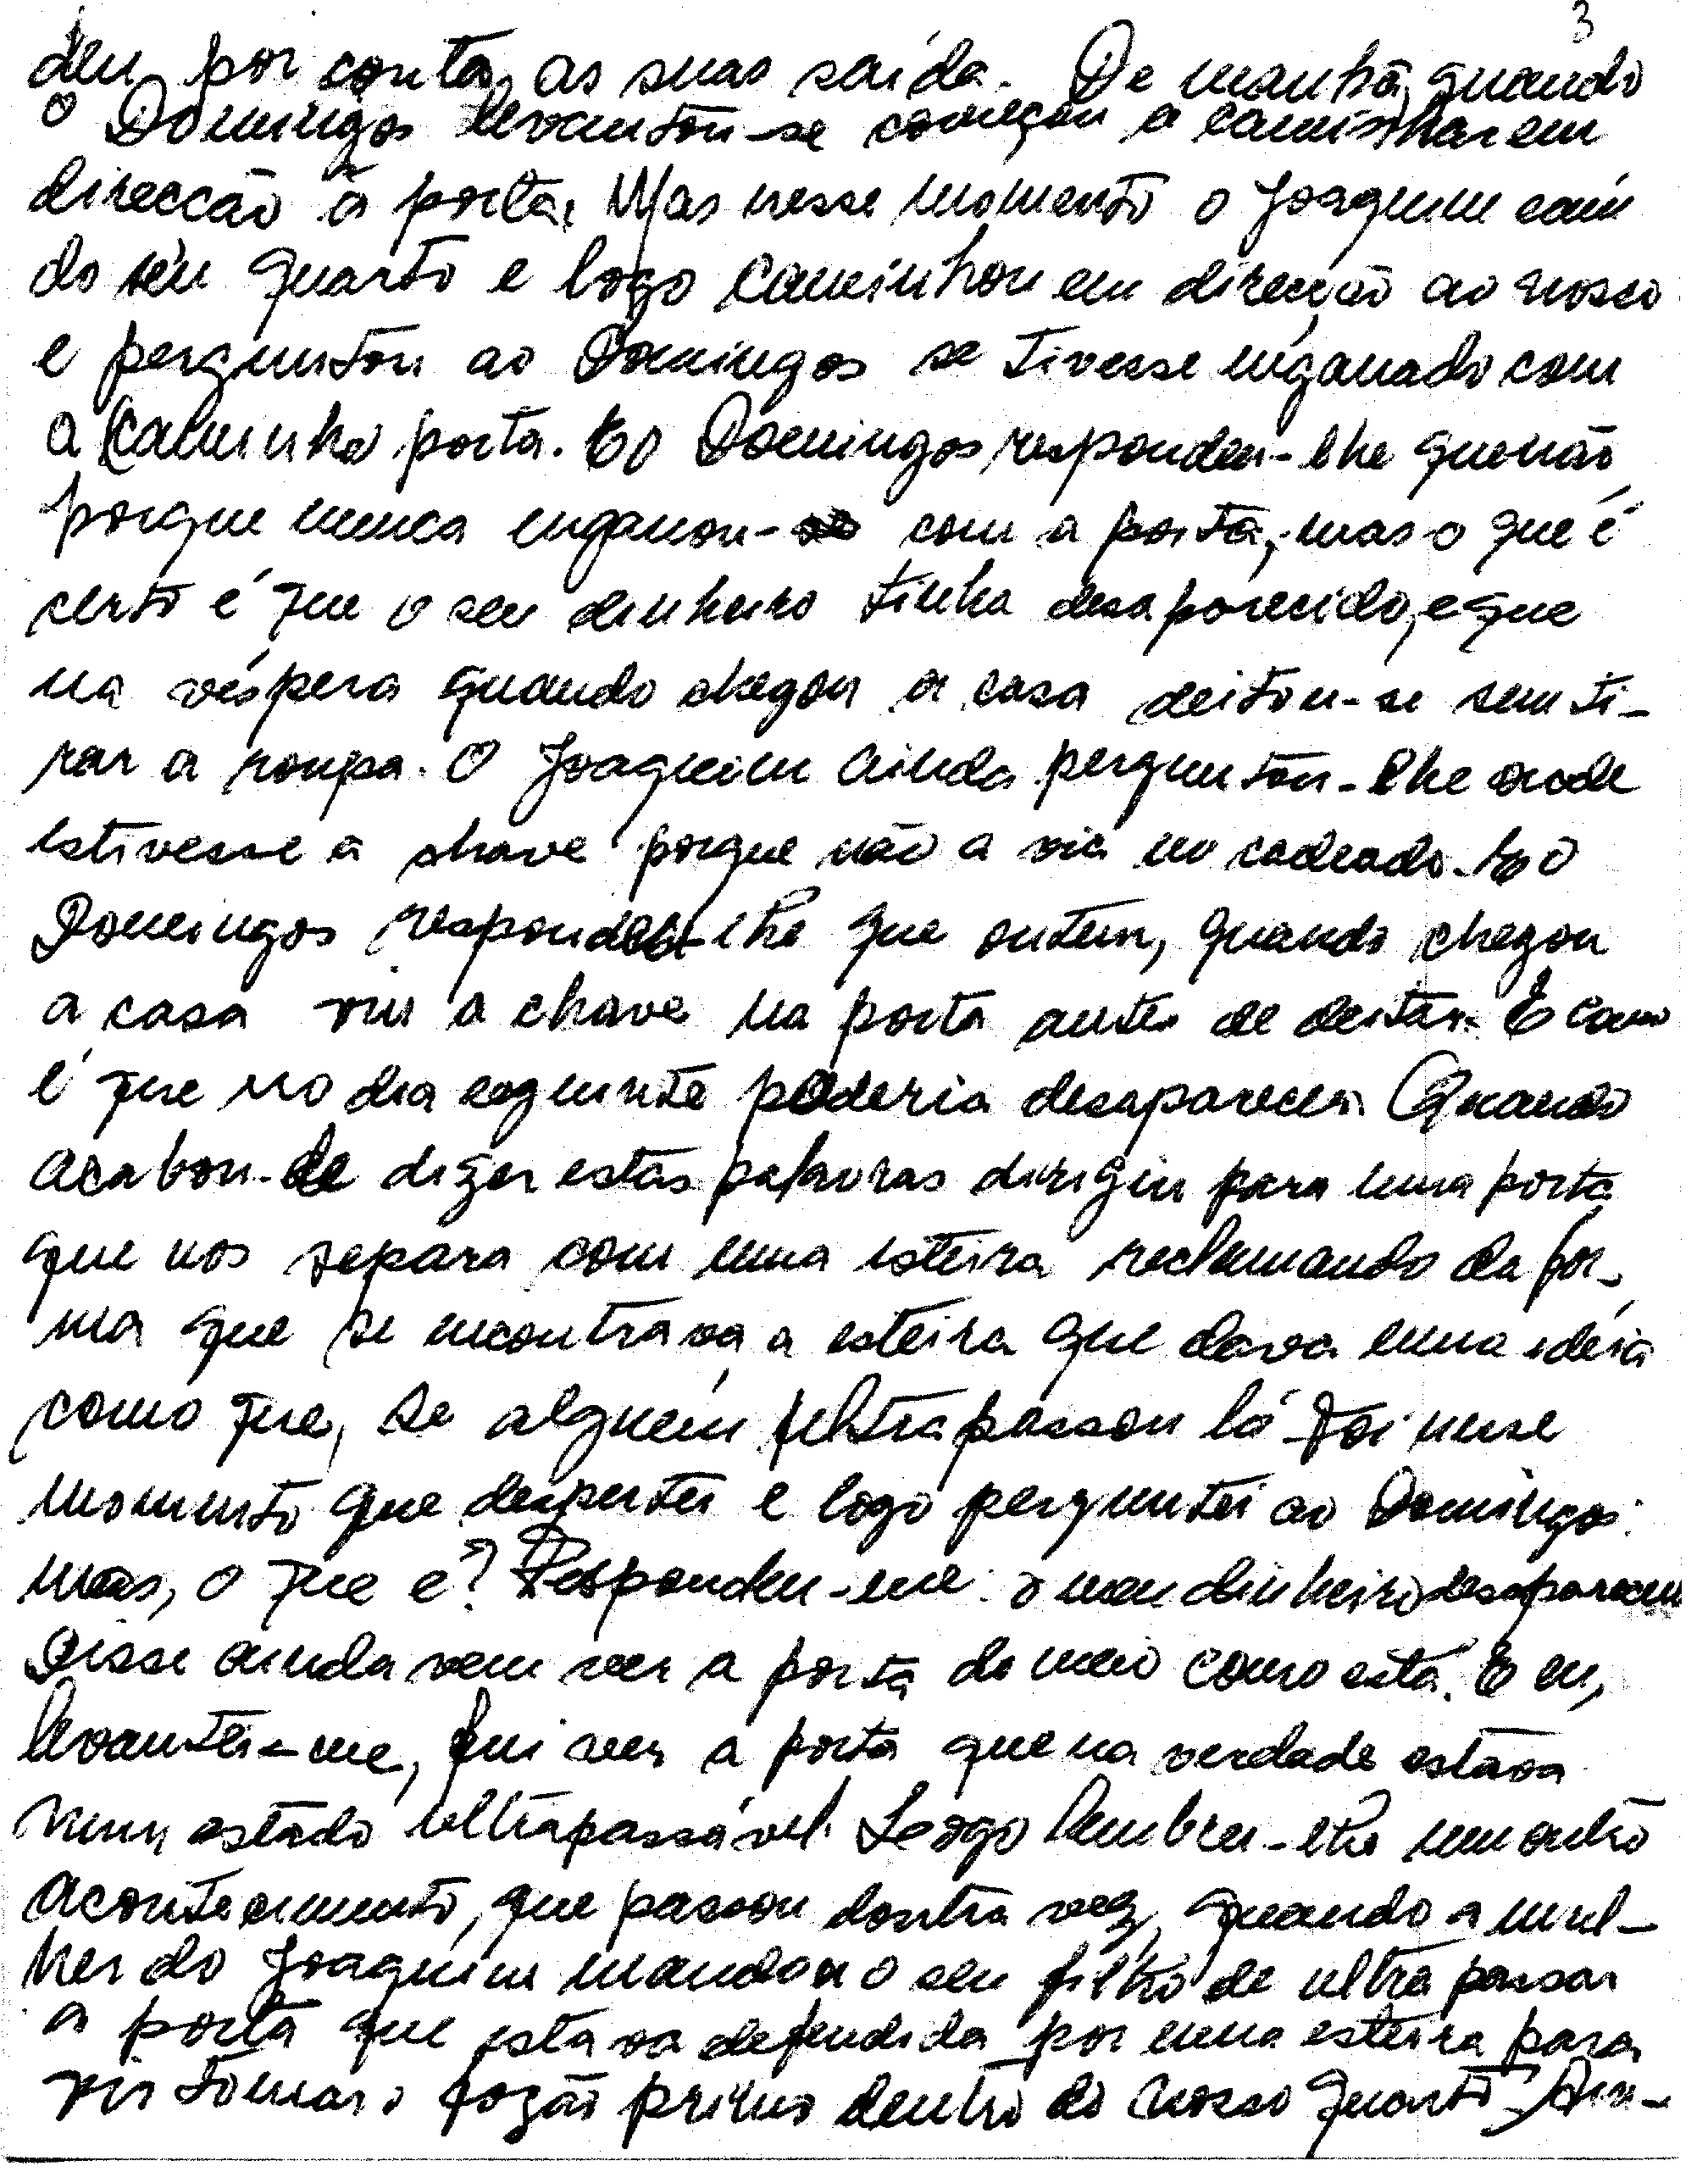 3
deu por conta, as suas saída. De manhã, quando
o Domingos levantou-se começou a caminhar em
direcção à porta. Mas nesse momento o Joaquim saiu
do seu quarto e logo caminhou em direcção ao nosso
e perguntou ao Domingos se tivesse enganado com
a porta. E o Domingos respondeu-lhe que não
porque nunca enganou-se com a porta, mas o que é
certo é que o seu dinheiro tinha desaparecido, e que
na véspera quando chegou a casa deitou-se sem ti-
rar a roupa. O Joaquim ainda perguntou-lhe onde
estivesse a chave porque não a via no cadeado. E o
Domingos respondeu-lhe que ontem, quando chegou
a casa viu a chave na porta antes de deitar. E como
é que no dia seguinte poderia desaparecer. Quando
acabou-de dizer estas palavras dirigiu para uma porta
que nos separa com uma esteira reclamando da for-
ma que se encontrava a esteira que dava uma ideia
como que, se alguém ultrapassou lá. Foi nesse
momento que despertei e logo perguntei ao Domingos:
mas, o que é? Respondeu-me: o meu dinheiro desapareceu
Disse ainda vem ver a porta do meio como está. E eu,
levantei-me, fui ver a porta que na verdade estava
num estado ultrapassável. Logo lembrou-lhe um outro
acontecimento, que passou doutra vez, quando a mul-
her do Joaquim mandou o seu filho de ultrapassar
a porta que estava defendida por uma esteira para
vir tomar o fogão primo dentro do nosso quarto.